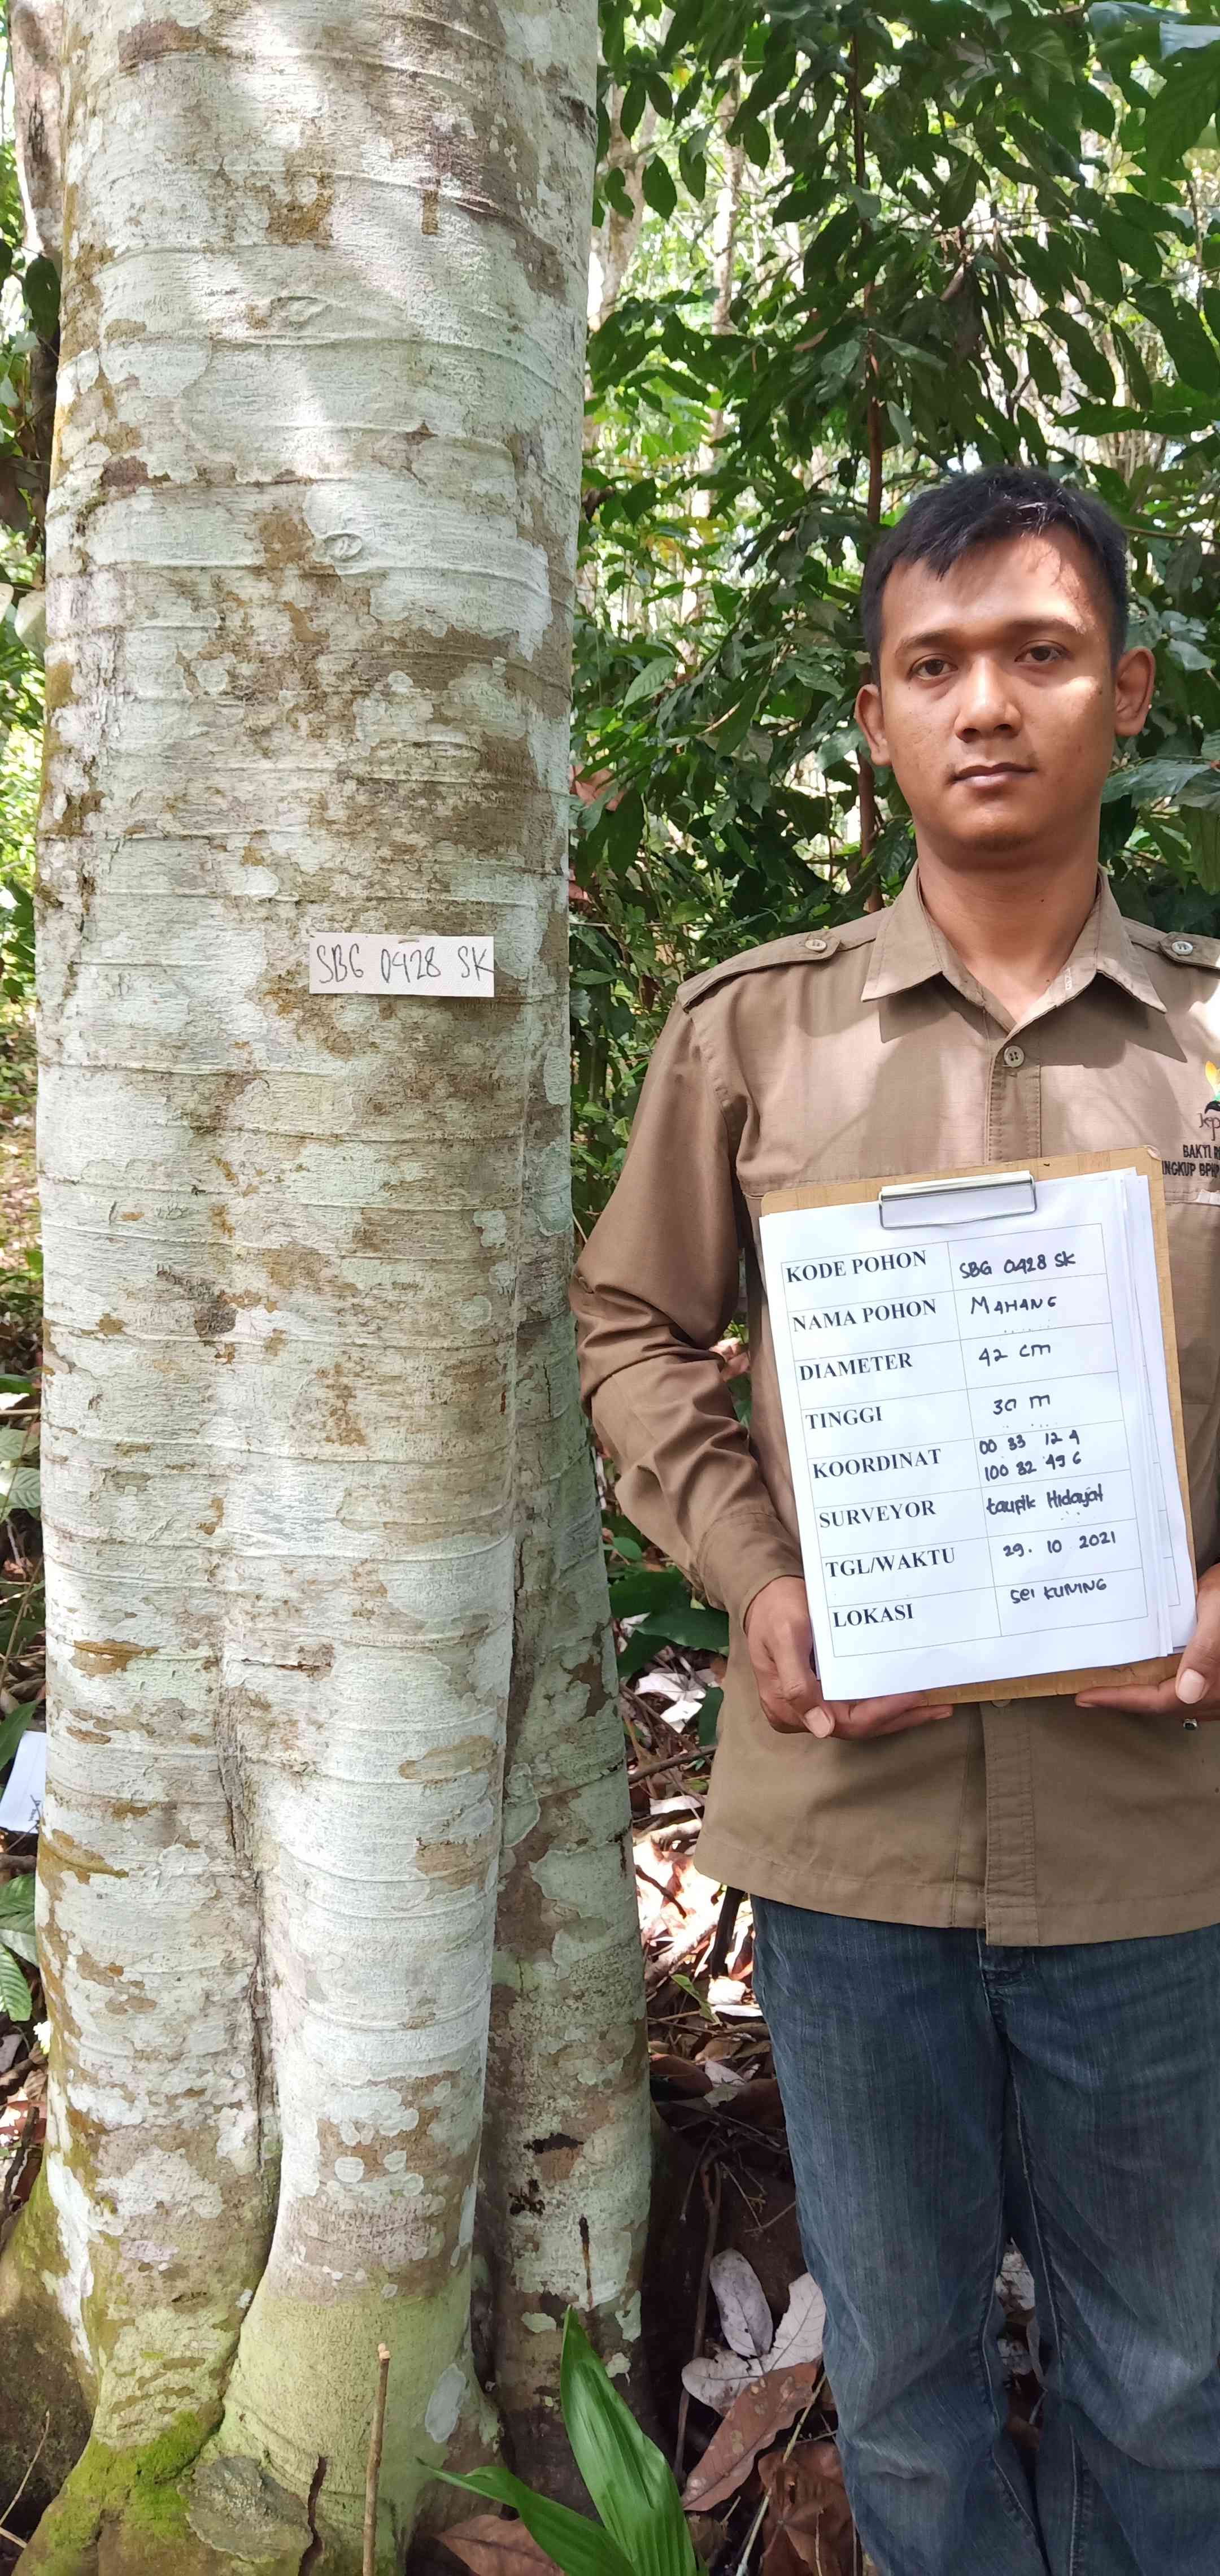 SBG 0428 SK
BAKTI
INGKUP
KODE POHON SBG 0428 SK
NAMA POHON MAHANG
DIAMETER 42 cm
TINGGI 30 m
KOORDINAT 00 33 12 4
100 32 49 6
SURVEYOR taupik Hidayat
TGL/WAKTU 29. 10 2021
LOKASI Sei KUNING